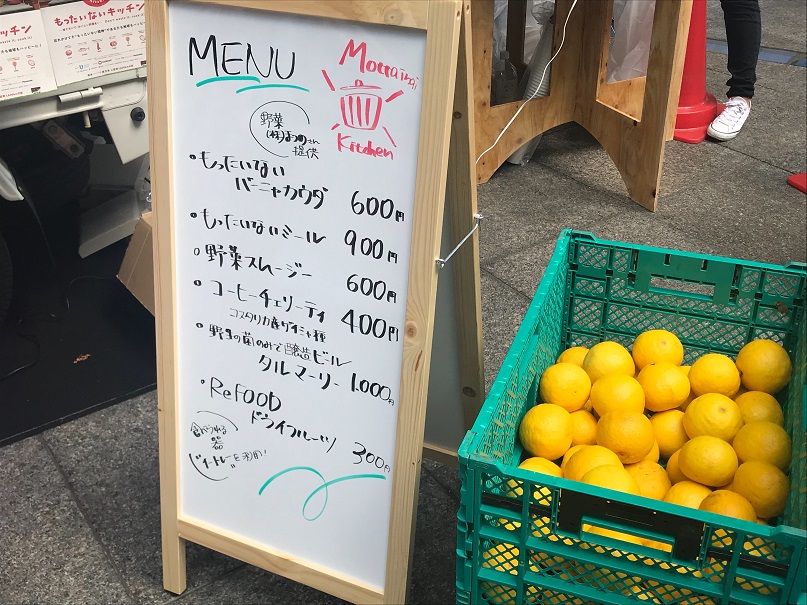 もったいないキッチン
MENU
Mottainai
Kitchen
野菜
(株)まつのさん
提供
・もったいない
バーニャカウダ 600円
・もったいないミール 900円
・野菜スムージー 600円
・コーヒーチェリーティ 400円
コスタリカ産ゲイシャ種
・野生の菌のみで醸造ビール
タルマーリー 1,000円
・ReFOOD
ドライフルーツ 300円
食べられる
器
"イートレー"を利用!